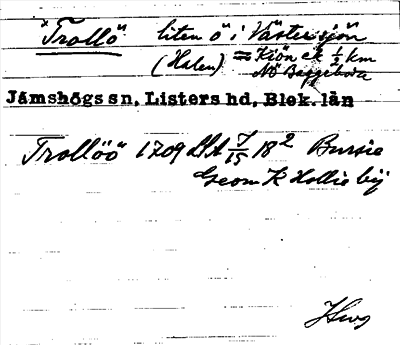 *Trollö liten ö i Västersjön
(Halen) = Kiön c:a ½ km
NÖ Baggeboda
Jämshögs sn, Listers hd, Blek. län
Trollöö 1709 LSA 7/15 18²
Geom K Hollie bÿ